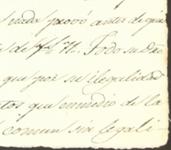 provo antes de que
Todo su Dro
que por su ilegalidad
tos que enmedio de la
comun sin legali